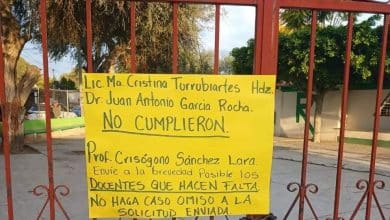 Lic. Ma. Cristina Turrubiartes Hdz.
Dr. Juan Antonio García Rocha.
NO CUMPLIERON.
Prof. Crisógono Sánchez Lara.
Envíe a la brevedad Posible los
DOCENTES QUE HACEN FALTA.
NO HAGA CASO OMISO A LA
SOLICITUD ENVIADA.